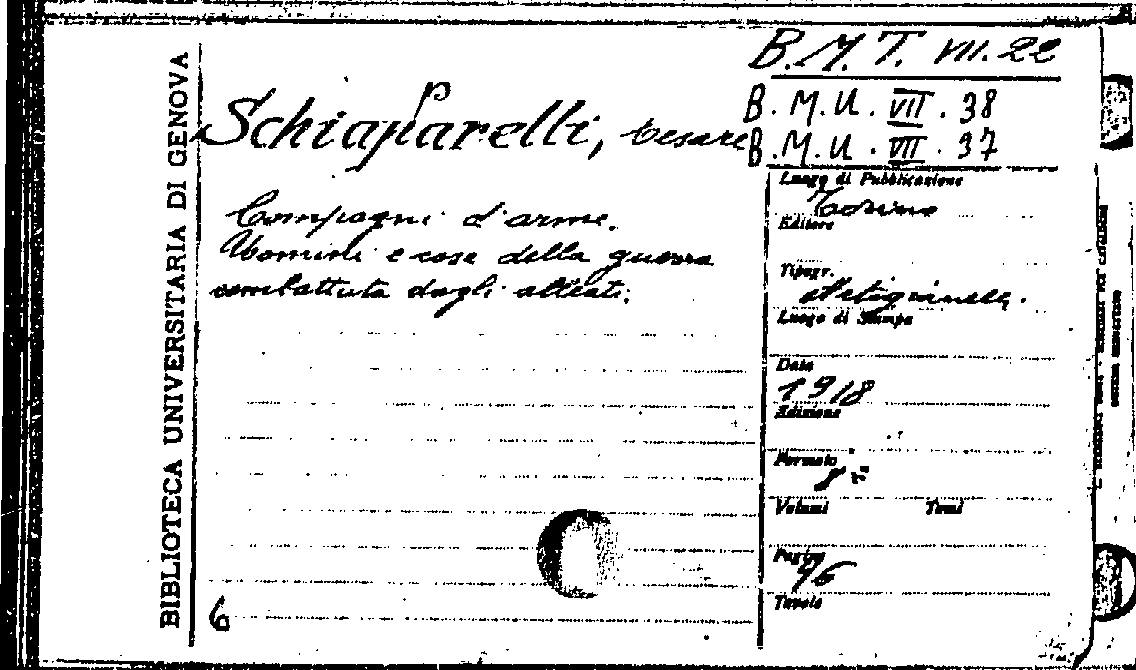 BIBLIOTECA UNIVERSITARIA DI GENOVA
B.M.T. VII.22
B.M.U. VII.38
B.M.U. VII.37
Schiaparelli, Cesare
p
Compagni d'arme.
Uomini e cose della guerra
combattuta dagli alleati.
6
Luogo di Pubblicazione
Torino
Editore
Tipogr.
Artigianelli.
Luogo di Stampa
Data
1918
Edizione
Formato
8°
Volumi Tomi
Pagine
46
Tavole